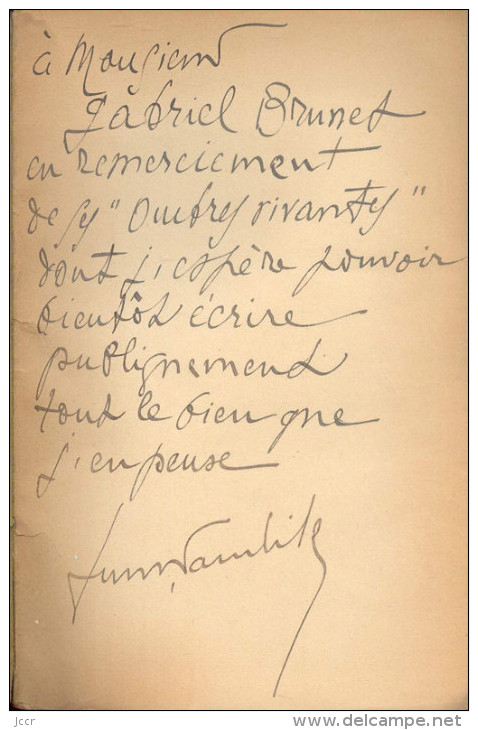 à Monsieur
Gabriel Brunet
en remerciement
de ses "Ombres vivantes"
dont j'espère pouvoir
bientôt écrire
publiquement
tout le bien que
j'en pense
jccr
www.delcampe.net